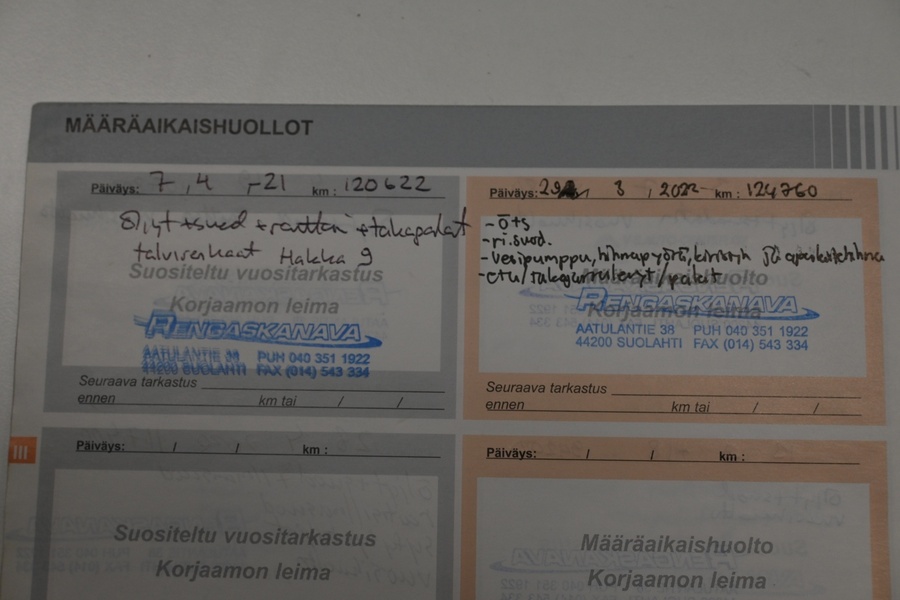 MÄÄRÄAIKAISHUOLLOT
Päiväys: 7 , 4 , -21 km : 120622
Öljyt + suod + raitisi + takapalat
talvirenkaat Hakka 9
Suositeltu vuositarkastus
Korjaamon leima
RENGASKANAVA
AATULANTIE 38 PUH 040 351 1922
44200 SUOLAHTI FAX (014) 543 334
Seuraava tarkastus
ennen km tai / /
Päiväys: 29 , 3 , 2022 km : 124760
- ö+s
- ri.suod.
- vesipumppu, hihnapyörä, kiristin
- etu/taka /palat
Määräaikaishuolto
Korjaamon leima
RENGASKANAVA
AATULANTIE 38 PUH 040 351 1922
44200 SUOLAHTI FAX (014) 543 334
Seuraava tarkastus
ennen km tai / /
III
Päiväys: / / km :
Suositeltu vuositarkastus
Korjaamon leima
Päiväys: / / km :
Määräaikaishuolto
Korjaamon leima